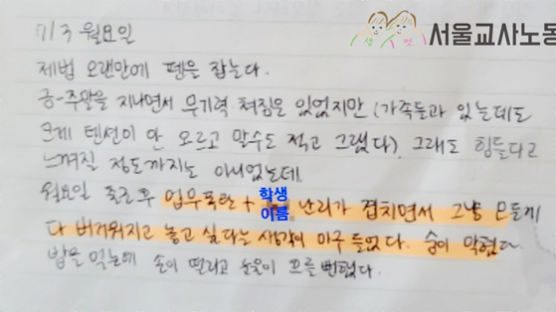 서울교사노동
7/3 월요일
제법 오랜만에 펜을 잡는다.
금-주말을 지나면서 무기력 쳐짐은 있었지만 (가족들과 있는데도
크게 텐션이 안 오르고 말수도 적고 그랬다). 그래도 힘들다고
느껴질 정도까지는 아니었는데
월요일 출근 후 업무폭탄 + 학생 이름 난리가 겹치면서 그냥 모든게
다 버거워지고 놓고 싶다는 생각이 마구 들었다. 숨이 막혔다.
밥을 먹는데 손이 떨리고 눈물이 흐를 뻔했다.